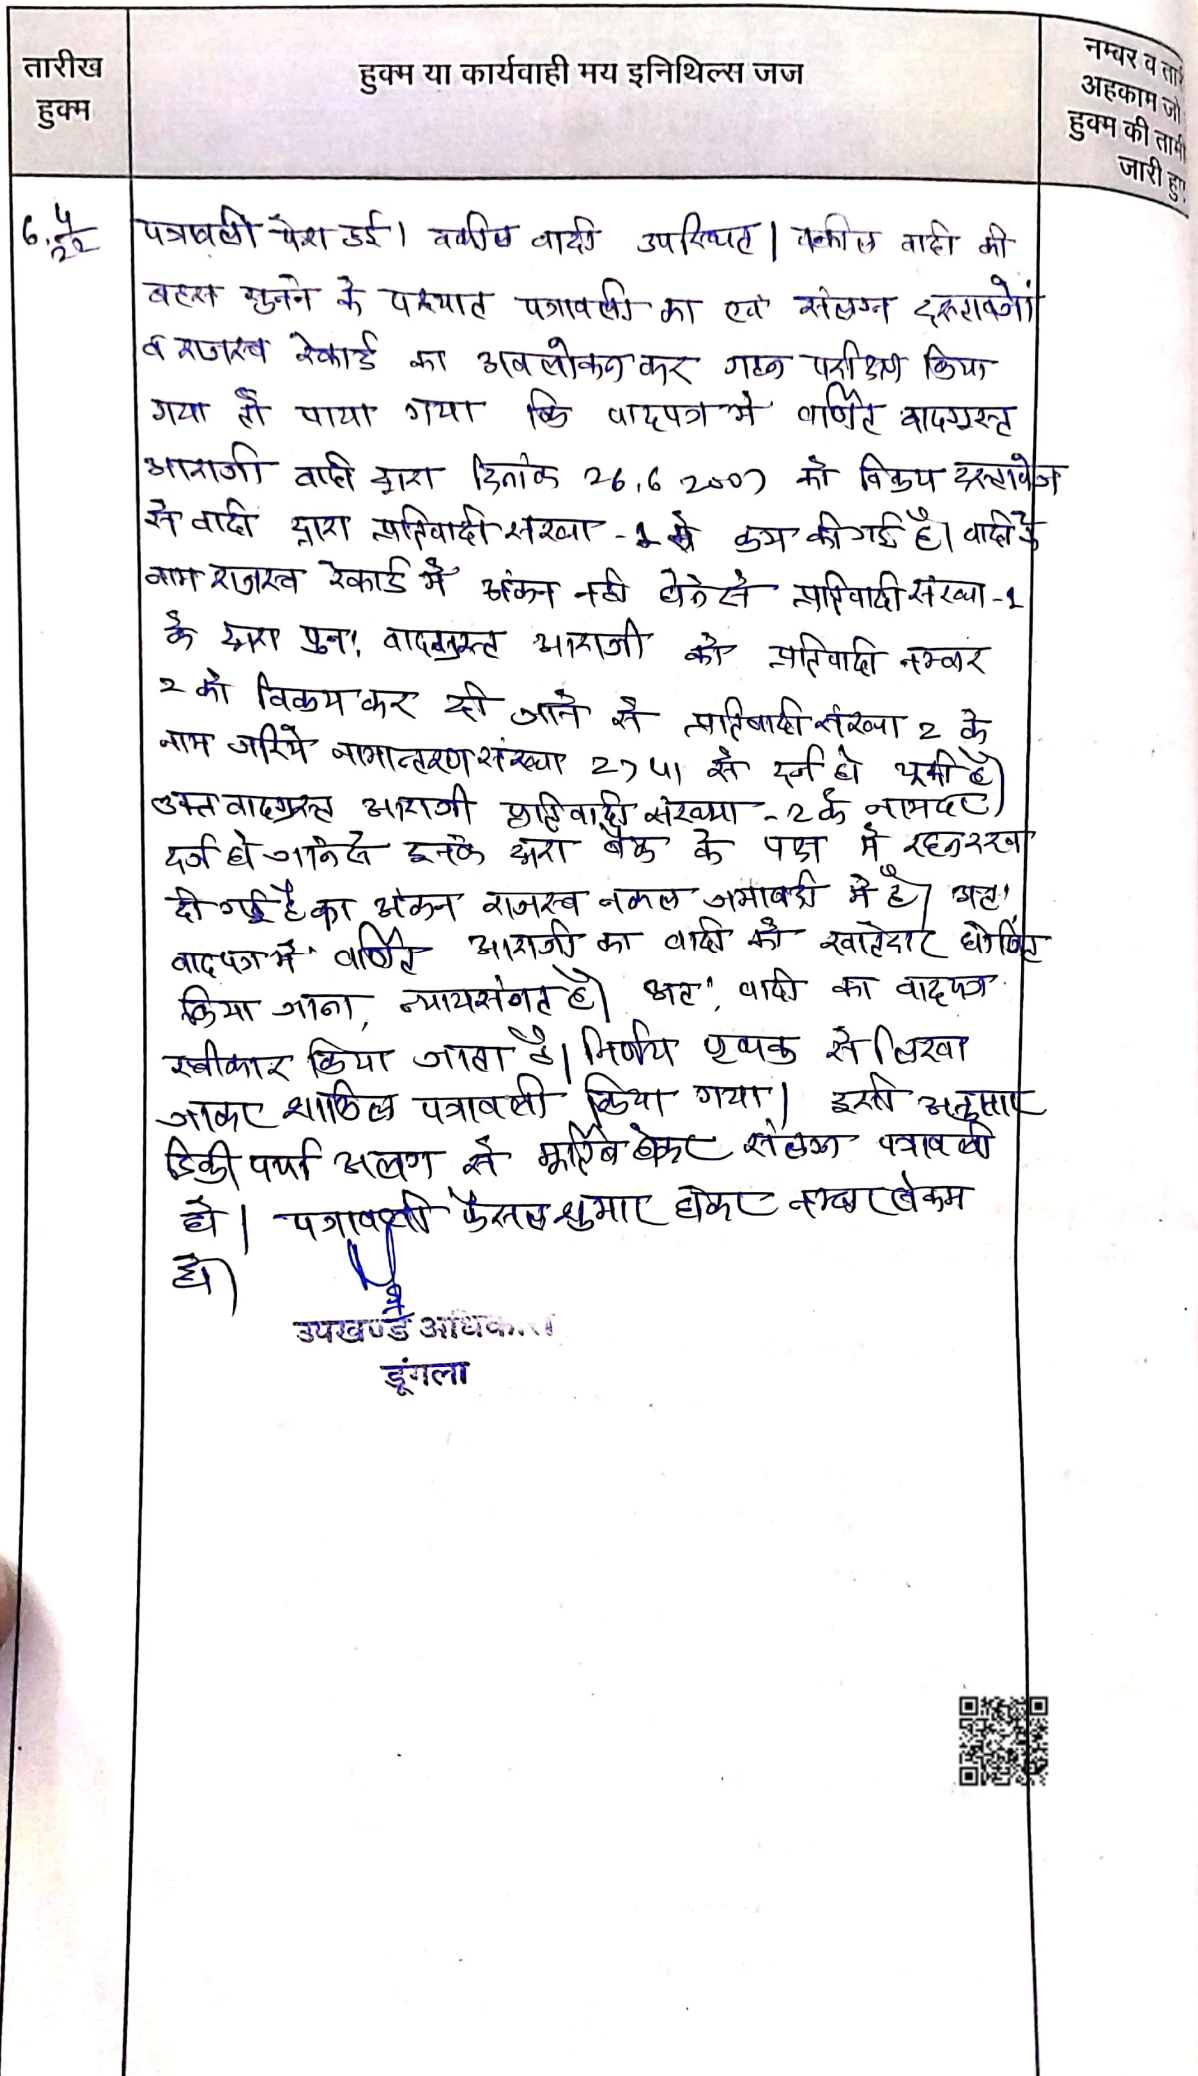 तारीख
हुक्म
हुक्म या कार्यवाही मय इनिथिल्स जज
नम्बर व तारी
अहकाम जो
हुक्म की तामी
जारी हुए
6.4/22
पत्रावली पेश हुई। वकील वादी उपस्थित। वकील वादी की
बहस सुनने के पश्चात पत्रावली का एवं संलग्न दस्तावेजों
व राजस्व रेकार्ड का अवलोकन कर गहन परीक्षण किया
गया तो पाया गया कि वादपत्र मे वर्णित वादग्रस्त
आराजी वादी द्वारा दिनांक 26.6.2007 को विक्रय दस्तावेज
से वादी द्वारा प्रतिवादी संख्या -1 से क्रय की गई है। वादी के
नाम राजस्व रेकार्ड में अंकन नही होने से प्रतिवादी संख्या-1
के द्वारा पुनः वादग्रस्त आराजी को प्रतिवादी नम्बर
2 को विक्रय कर दी जाने से प्रतिवादी संख्या 2 के
नाम जरिये नामान्तरण संख्या 2741 से दर्ज हो चूकी है।
उक्त वादग्रस्त आराजी प्रतिवादी संख्या -2 के नाम
दर्ज हो जाने से इनके द्वारा बैंक के पक्ष मे रहन रख
दी गई है का अंकन राजस्व नकल जमाबंदी में है। अतः
वादपत्र में वर्णित आराजी का वादी को खातेदार घोषित
किया जाना, न्यायसंगत है। अतः, वादी का वादपत्र
स्वीकार किया जाता है। निर्णय पृथक से लिखा
जाकर शामिल पत्रावली किया गया। इसी अनुसार
डिक्री पर्चा अलग से मुर्तिब होकर संलग्न पत्रावली
हो। पत्रावली फैसल शुमार होकर नम्बर से कम
हो।
उपखण्ड अधिकारी
डूंगला